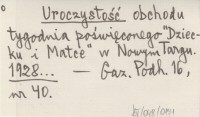 Uroczystość obchodu
tygodnia poświęconego "Dziec-
ku i Matce" w Nowym Targu.
1928... — Gaz. Podh. 16,
nr 40.